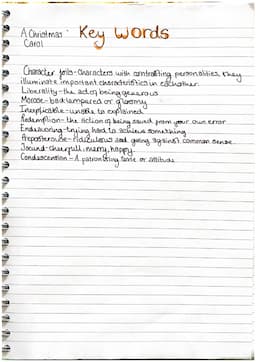 A Christmas Carol
Key Words
Character foils - characters with contrasting personalities, they
illuminate important characteristics in eachother.
Liberality - the act of being generous
Morose - bad tempered or gloomy
Inexplicable - unable to explained
Redemption - the action of being saved from your own error
Endeavoring - trying hard to achieve something
Preposterous - Ridiculous and going against common sense
Jocund - cheerfull, merry, happy
Condescention - A patronising tone or attitude